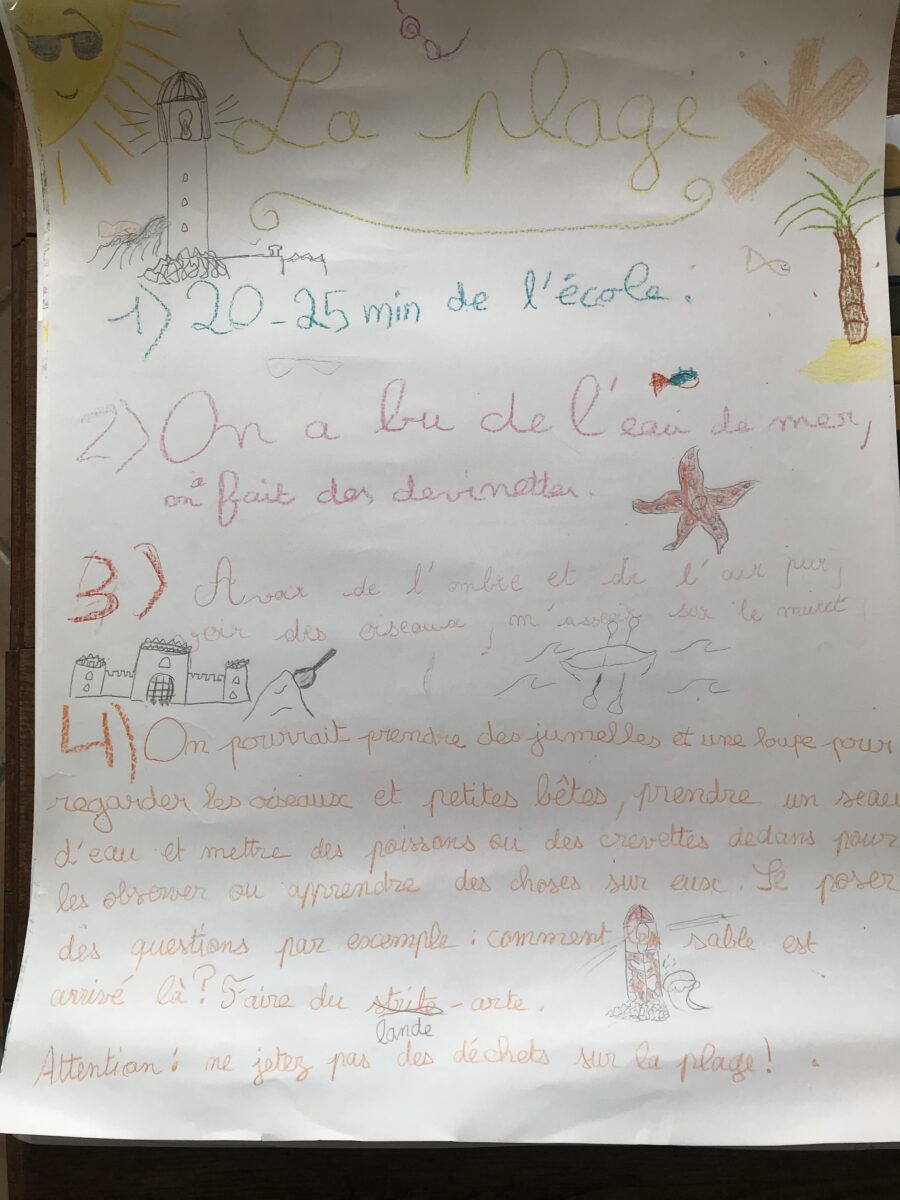 La plage
1) 20-25 min de l'école.
2) On a bu de l'eau de mer,
on a fait des devinettes.
3) Avoir de l'ombre et de l'air pur,
voir des oiseaux, m'asseoir sur le muret
4) On pourrait prendre des jumelles et une loupe pour
regarder les oiseaux et petites bêtes, prendre un seau
d'eau et mettre des poissons ou des crevettes dedans pour
les observer ou apprendre des choses sur eux. Se poser
des questions par exemple : comment sable est
arrivé là ? Faire du -arte.
lande
Attention : ne jetez pas des déchets sur la plage !